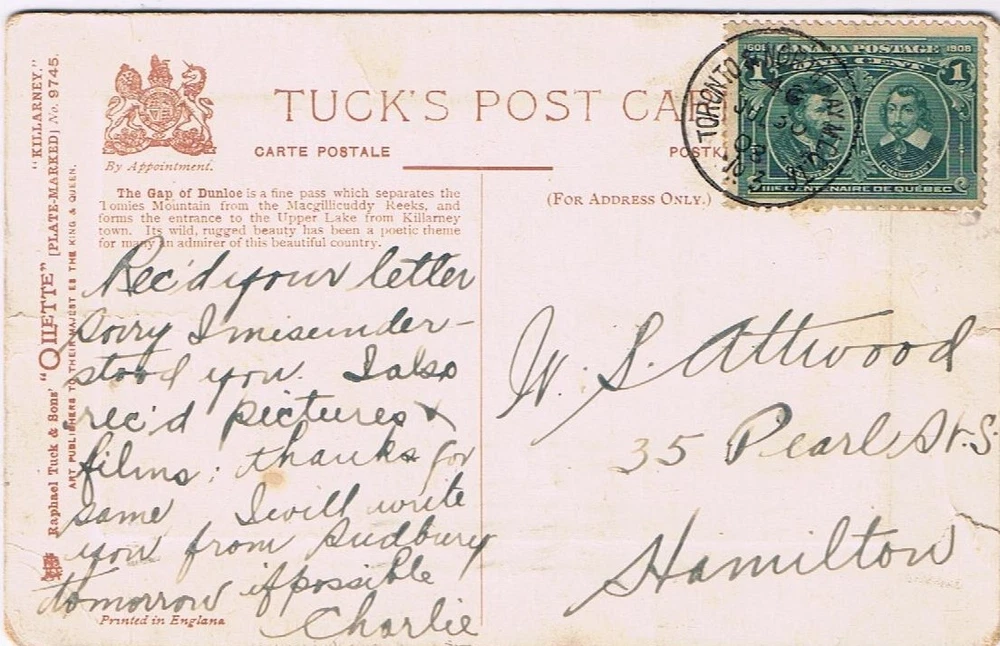 "KILLARNEY."
Raphael Tuck & Sons' "OILETTE" [PLATE-MARKED] No. 9745.
ART PUBLISHERS TO THEIR MAJESTIES THE KING & QUEEN.
By Appointment.
TUCK'S POST CARD
CARTE POSTALE
The Gap of Dunloe is a fine pass which separates the
Tomies Mountain from the Macgillicuddy Reeks, and
forms the entrance to the Upper Lake from Killarney
town. Its wild, rugged beauty has been a poetic theme
for many an admirer of this beautiful country.
(FOR ADDRESS ONLY.)
1608 CANADA POSTAGE 1908
1 ONE CENT 1
IIIe CENTENAIRE DE QUÉBEC
TORONTO
30
08
Rec'd your letter
sorry I misunder-
stood you. I also
rec'd pictures &
films; thanks for
same I will write
you from Sudbury
tomorrow if possible
Charlie
Printed in England
W. S. Attwood
35 Pearl St. S.
Hamilton